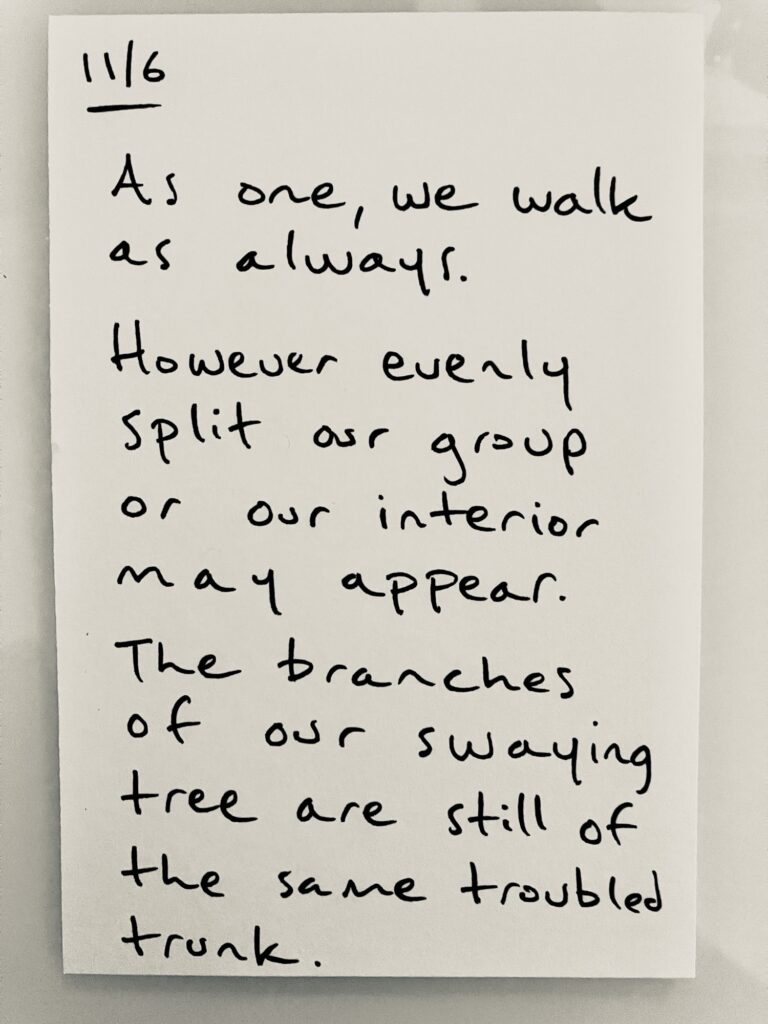 11/6
As one, we walk
as always.
However evenly
split our group
or our interior
may appear.
The branches
of our swaying
tree are still of
the same troubled
trunk.